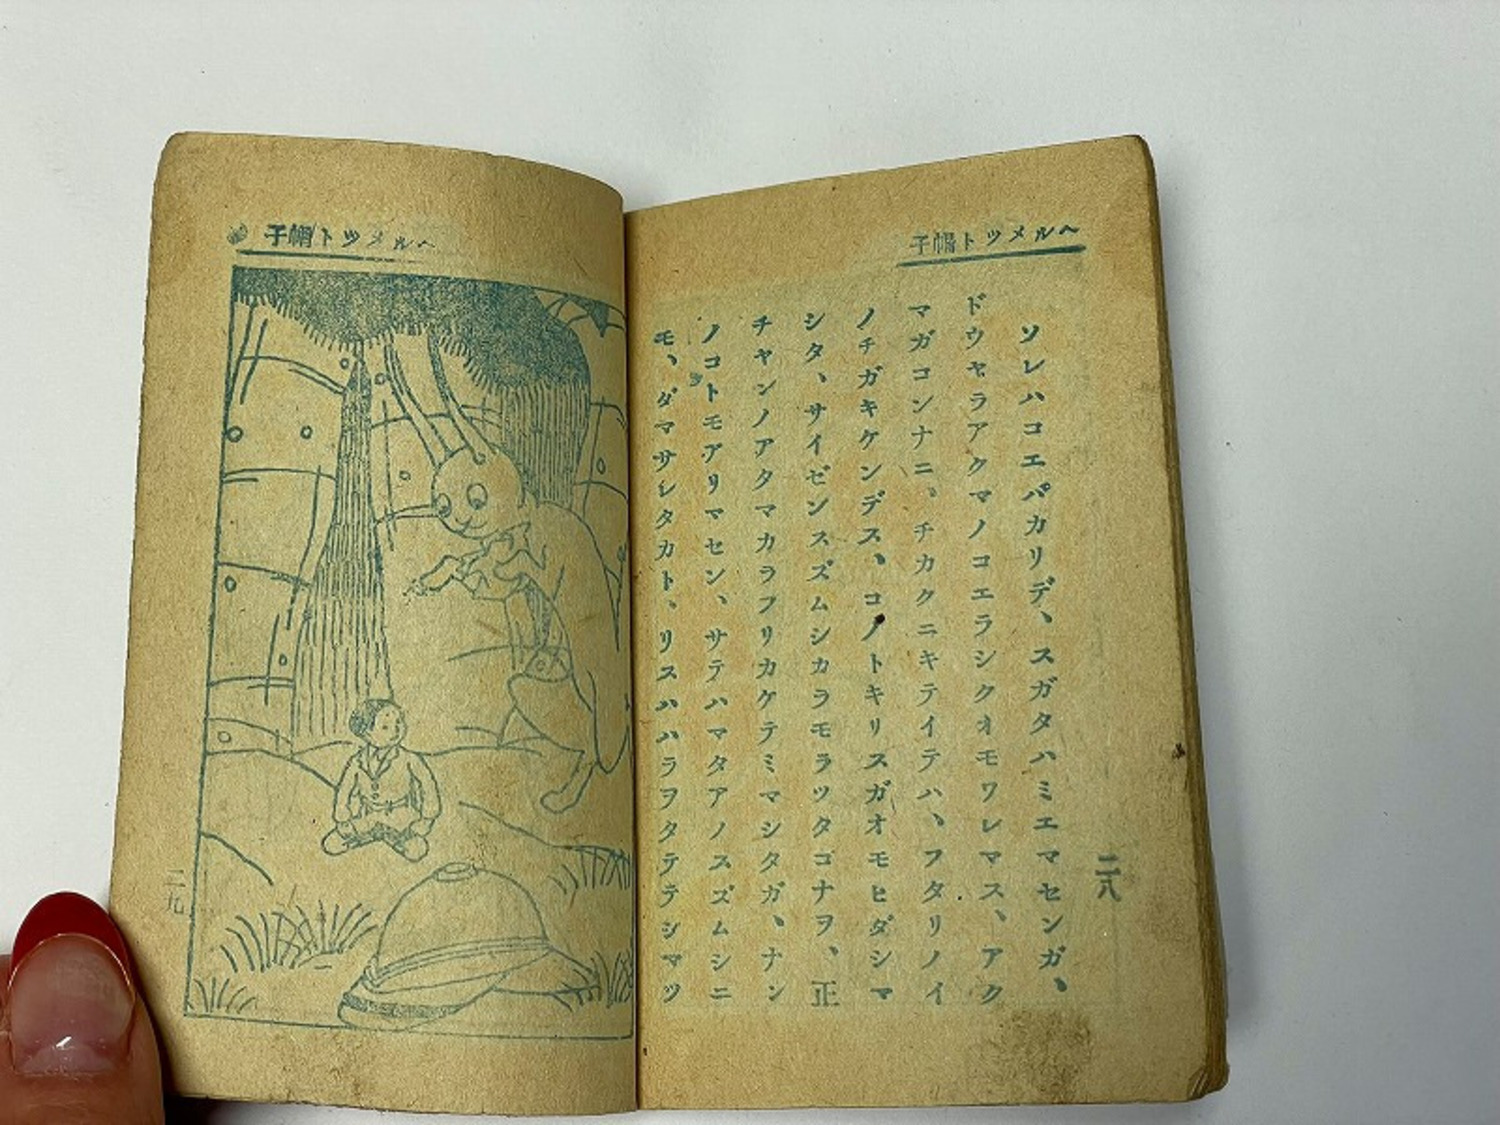 ヘルメツト帽子
ソレハコエバカリデ、スガタハミエマセンガ、
ドウヤラアクマノコエラシクオモワレマス、アク
マガコンナニ、チカクニキテイテハ、フタリノイ
ノチガキケンデス、コノトキリスガオモヒダシマ
シタ、サイゼンスズムシカラモラツタコナヲ、正
チヤンノアタマカラフリカケテミマシタガ、ナン
ノコトモアリマセン、サテハマタアノスズムシニ
モ、ダマサレタカト、リスハハラヲタテテシマツ
二八
ヘルメツト帽子
二九